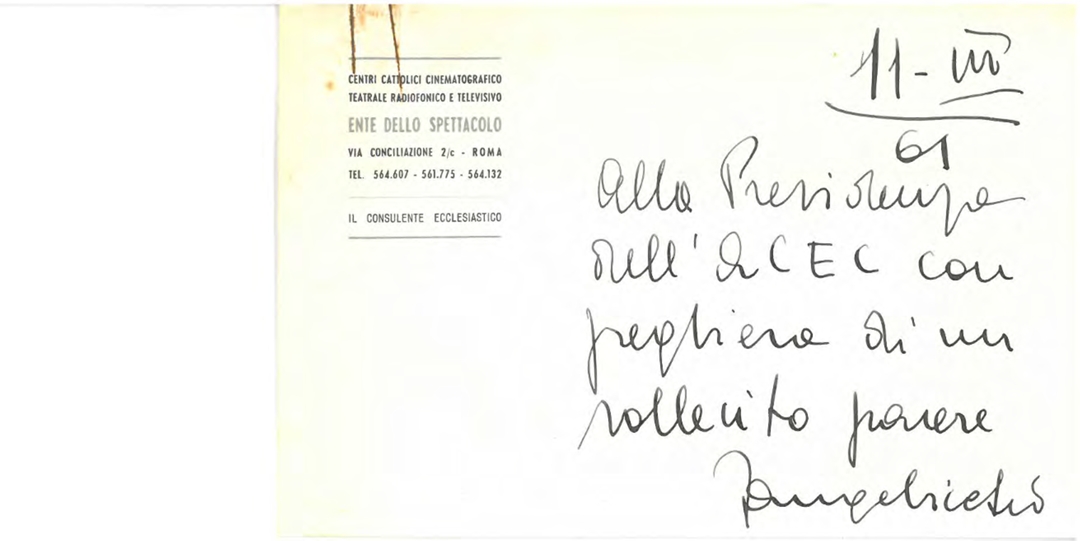 CENTRI CATTOLICI CINEMATOGRAFICO
TEATRALE RADIOFONICO E TELEVISIVO
ENTE DELLO SPETTACOLO
VIA CONCILIAZIONE 2/c - ROMA
TEL. 564.607 - 561.775 - 564.132
IL CONSULENTE ECCLESIASTICO
11 - VII
61
Alla Presidenza
dell' ACEC con
preghiera di un
sollecito parere